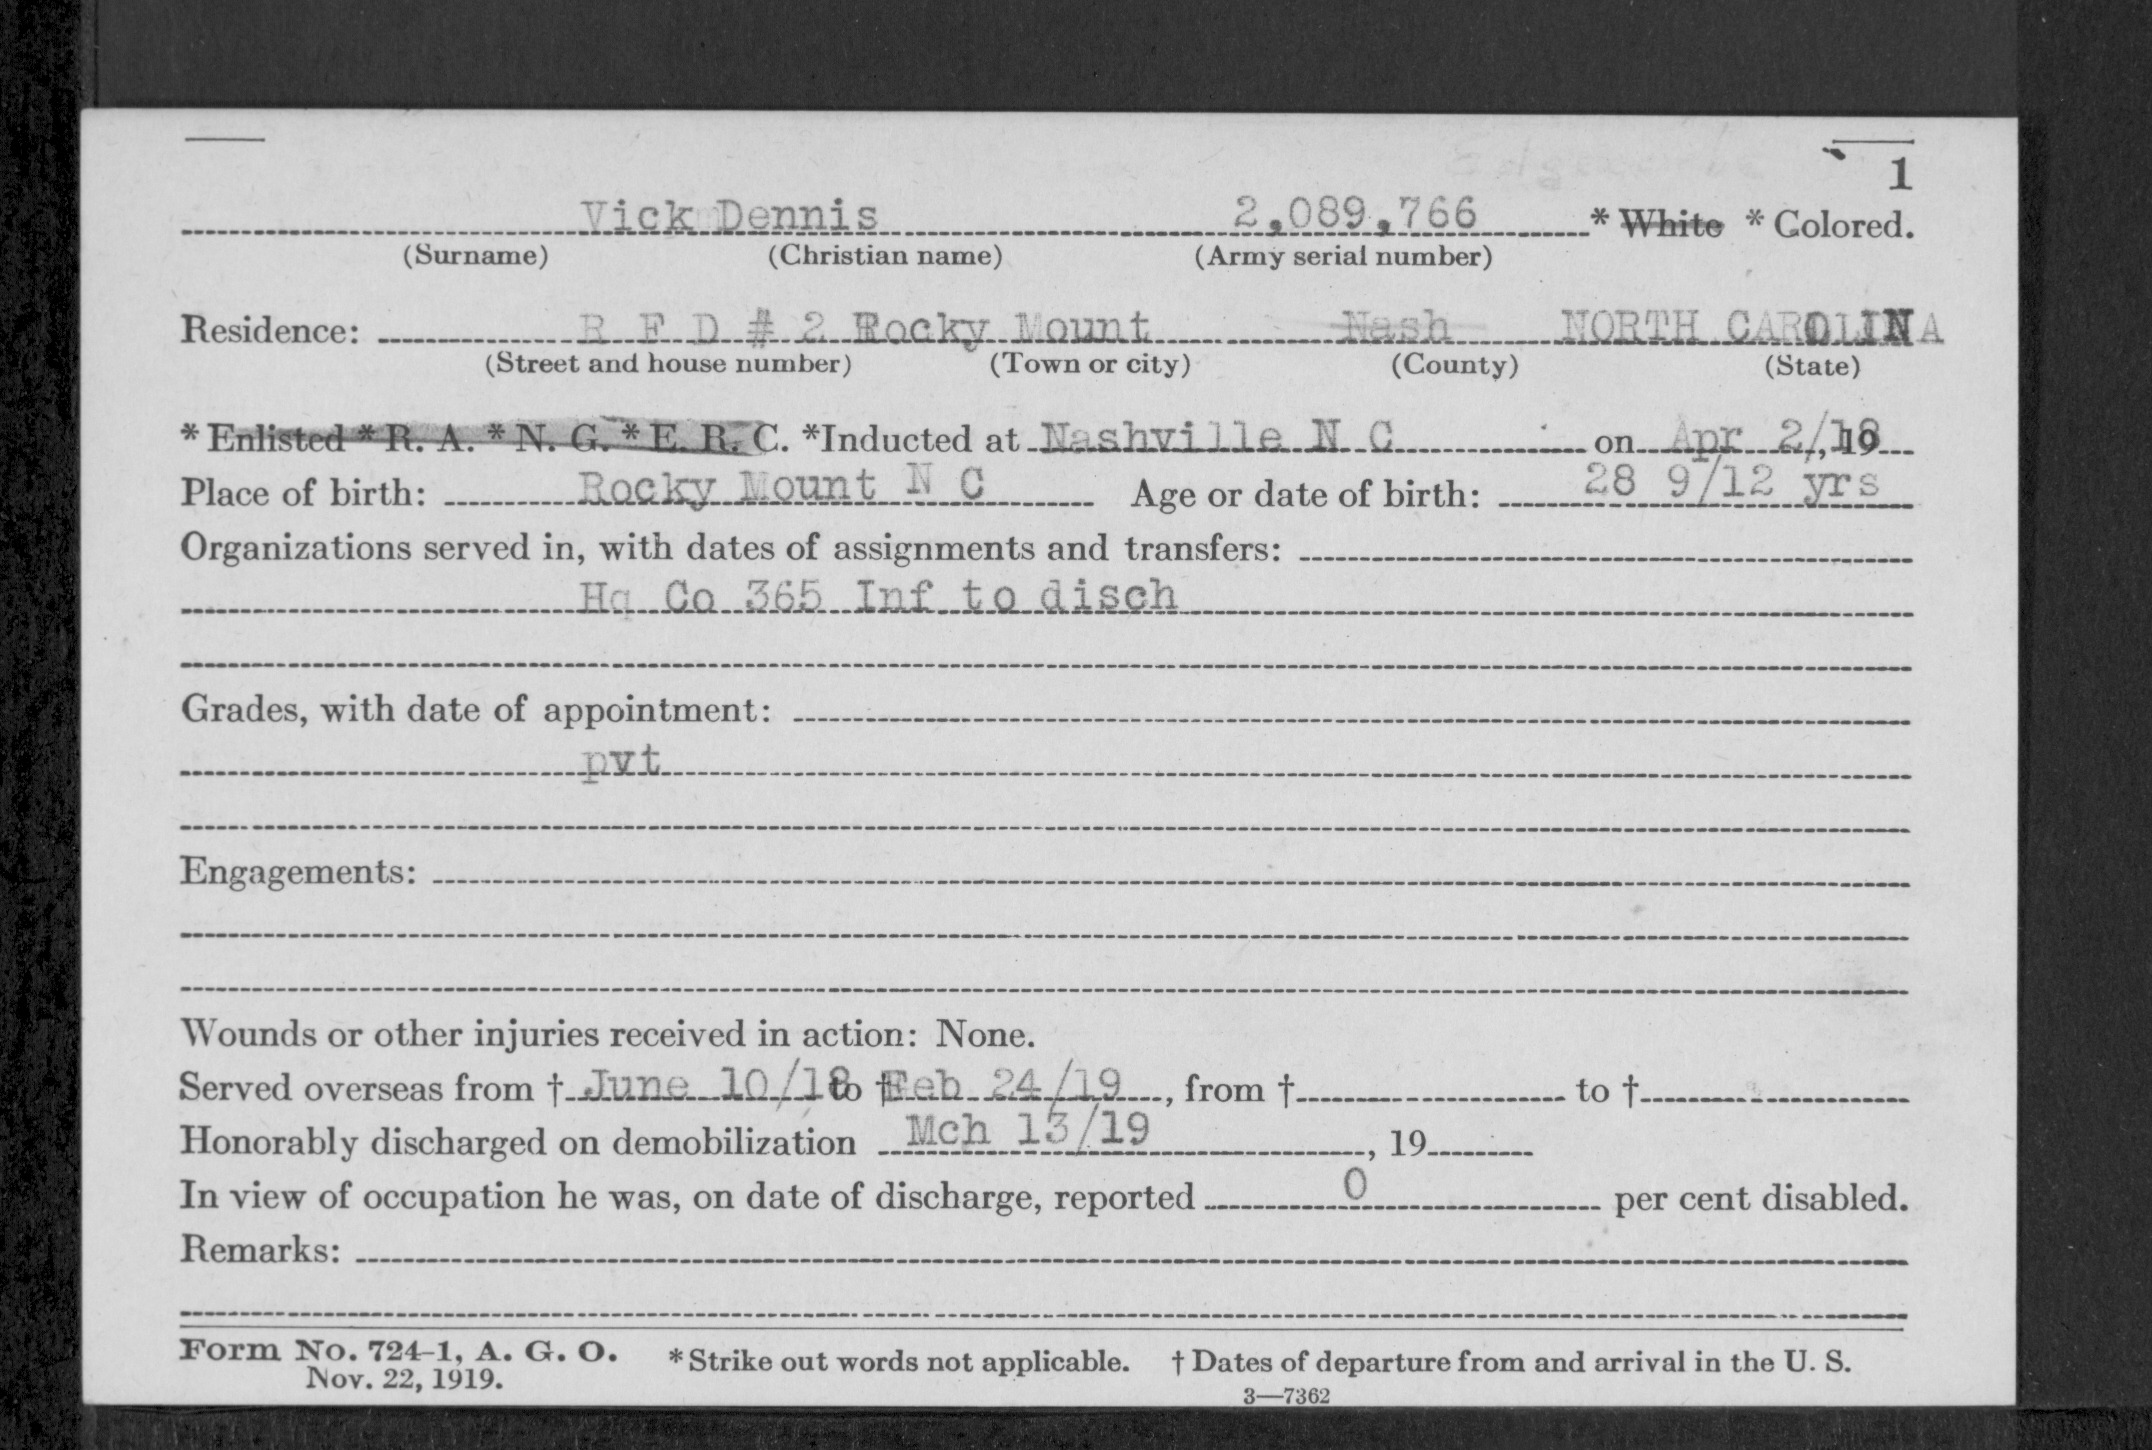 1
Vick Dennis 2,089,766 * White * Colored.
(Surname) (Christian name) (Army serial number)
Residence: R F D # 2 Rocky Mount Nash NORTH CAROLINA
(Street and house number) (Town or city) (County) (State)
* Enlisted * R. A. * N. G. * E. R. C. *Inducted at Nashville N C on Apr 2/18, 19
Place of birth: Rocky Mount N C Age or date of birth: 28 9/12 yrs
Organizations served in, with dates of assignments and transfers:
Hq Co 365 Inf to disch
Grades, with date of appointment:
pvt
Engagements:
Wounds or other injuries received in action: None.
Served overseas from † June 10/18 to † Feb 24/19, from † to †
Honorably discharged on demobilization Mch 13/19, 19
In view of occupation he was, on date of discharge, reported 0 per cent disabled.
Remarks:
Form No. 724-1, A. G. O. * Strike out words not applicable. † Dates of departure from and arrival in the U. S.
Nov. 22, 1919.
3—7362